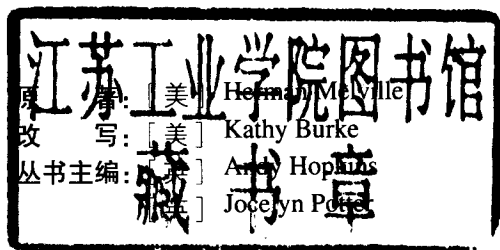 江苏工业学院图书馆
藏书章
原 著：［美］ Herman Melville
改 写：［美］ Kathy Burke
丛书主编：［英］ Andy Hopkins
［英］ Jocelyn Potter